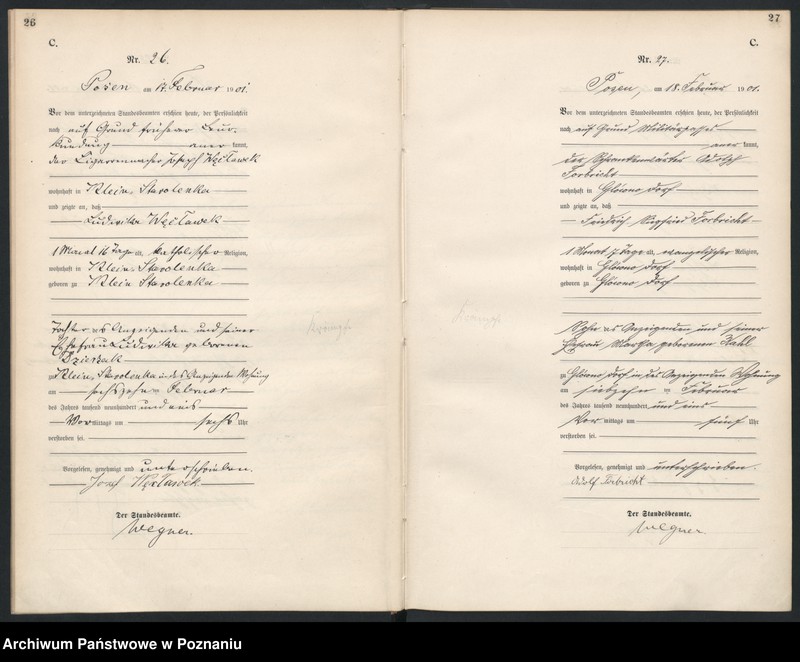 26
C.
Nr. 26.
Posen am 17. Februar 1901.
Vor dem unterzeichneten Standesbeamten erschien heute, der Persönlichkeit
nach auf Grund früherer
kundung anerkannt,
der Cigarrenmacher Joseph Węcławek
wohnhaft in Klein Starolenka
und zeigte an, daß
Ludwika Węcławek
1 Monat 16 Tage alt, katholischer Religion,
wohnhaft in Klein Starolenka
geboren zu Klein Starolenka
Tochter des Anzeigenden und seiner
Ehefrau Ludwika geborenen
zu Klein Starolenka in des Anzeigenden Wohnung
am sechszehnten Februar
des Jahres tausend neunhundert und eins
Vormittags um sechs Uhr
verstorben sei.
Vorgelesen, genehmigt und unterschrieben.
Josef Węcławek
Der Standesbeamte.
Wegner.
27
C.
Nr. 27.
Posen, am 18. Februar 1901.
Vor dem unterzeichneten Standesbeamten erschien heute, der Persönlichkeit
nach auf Grund Militärpasses
anerkannt,
der Schrankenwärter Adolf
Torbricht
wohnhaft in Glowno Dorf
und zeigte an, daß
Friedrich Siegfried Torbricht
1 Monat 7 Tage alt, evangelischer Religion,
wohnhaft in Glowno Dorf
geboren zu Glowno Dorf
Sohn des Anzeigenden und seiner
Ehefrau Martha geborenen
zu Glowno Dorf in des Anzeigenden Wohnung
am siebzehnten Februar
des Jahres tausend neunhundert und eins
Vormittags um fünf Uhr
verstorben sei.
Vorgelesen, genehmigt und unterschrieben.
Adolf Torbricht
Der Standesbeamte.
Wegner.
Archiwum Państwowe w Poznaniu